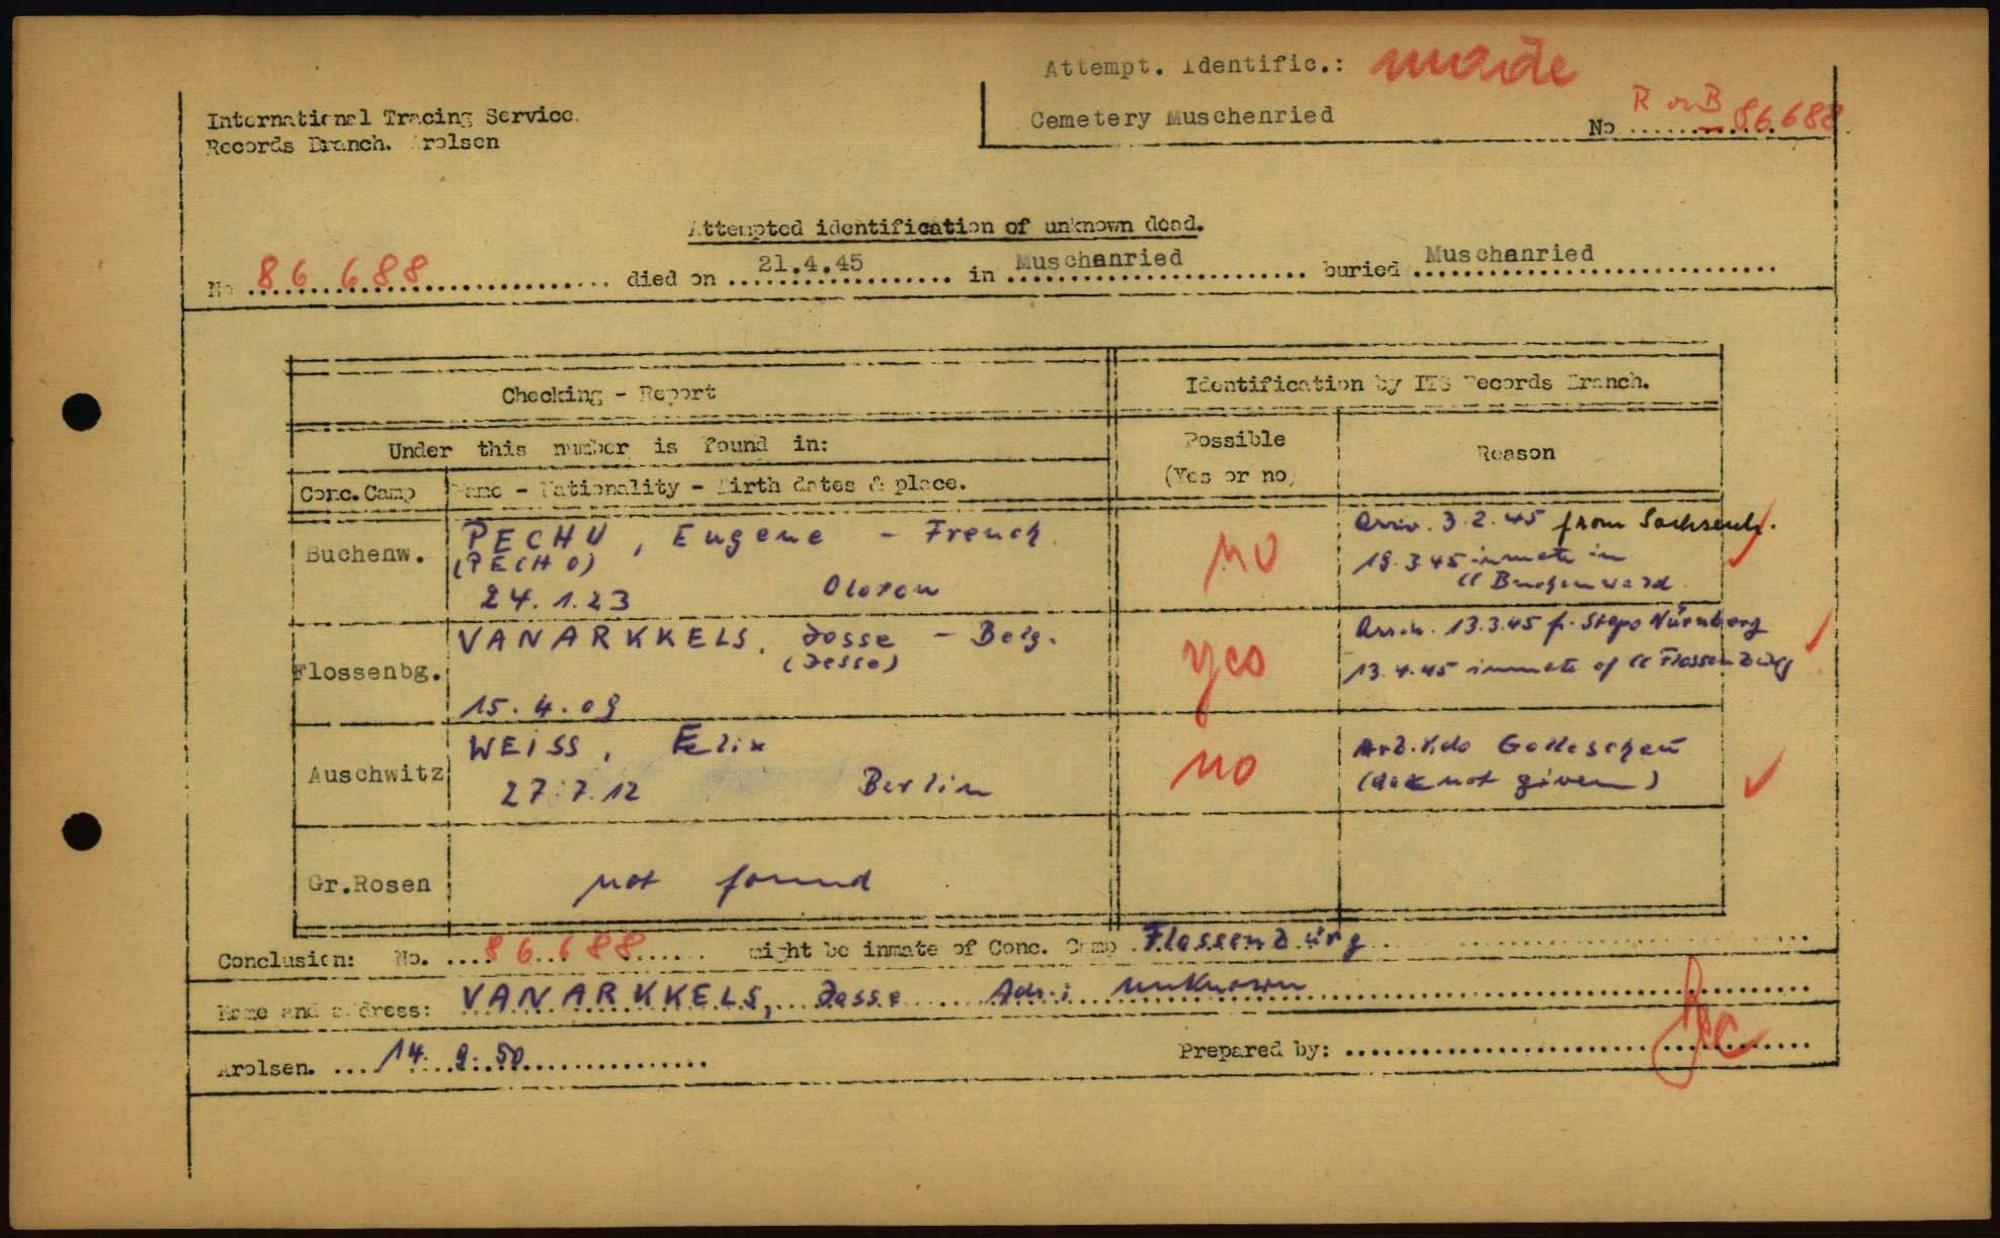 Attempt. Identific.: made
International Tracing Service.
Records Branch. Arolsen
Cemetery Muschenried
R or B
No ............ 86688
Attempted identification of unknown dead.
No 86 688 died on 21.4.45 in Muschanried buried Muschanried
Checking - Report
Identification by ITS Records Branch.
Under this number is found in:
Possible
(Yes or no)
Reason
Conc.Camp
Name - Nationality - Birth dates & place.
Buchenw.
PECHU, Eugene - French
(PECHO)
24.1.23 Oloron
no
Arriv. 3.2.45 from Sachsenh.
19.3.45 inmate in
CC Buchenwald
Flossenbg.
VANARKKELS, Josse - Belg.
(Jesse)
15.4.09
yes
13.3.45 f. Stapo Nürnberg
13.4.45 inmate of CC Flossenbürg
Auschwitz
WEISS, Felix
27.7.12 Berlin
no
Arb.Kdo
(date not given)
Gr.Rosen
not found
Conclusion: No. ....86 688...... might be inmate of Conc. Camp .Flossenbürg
Name and address: VANARKKELS, Josse Adr.: unknown
Arolsen. .... 14. 9. 50
Prepared by: